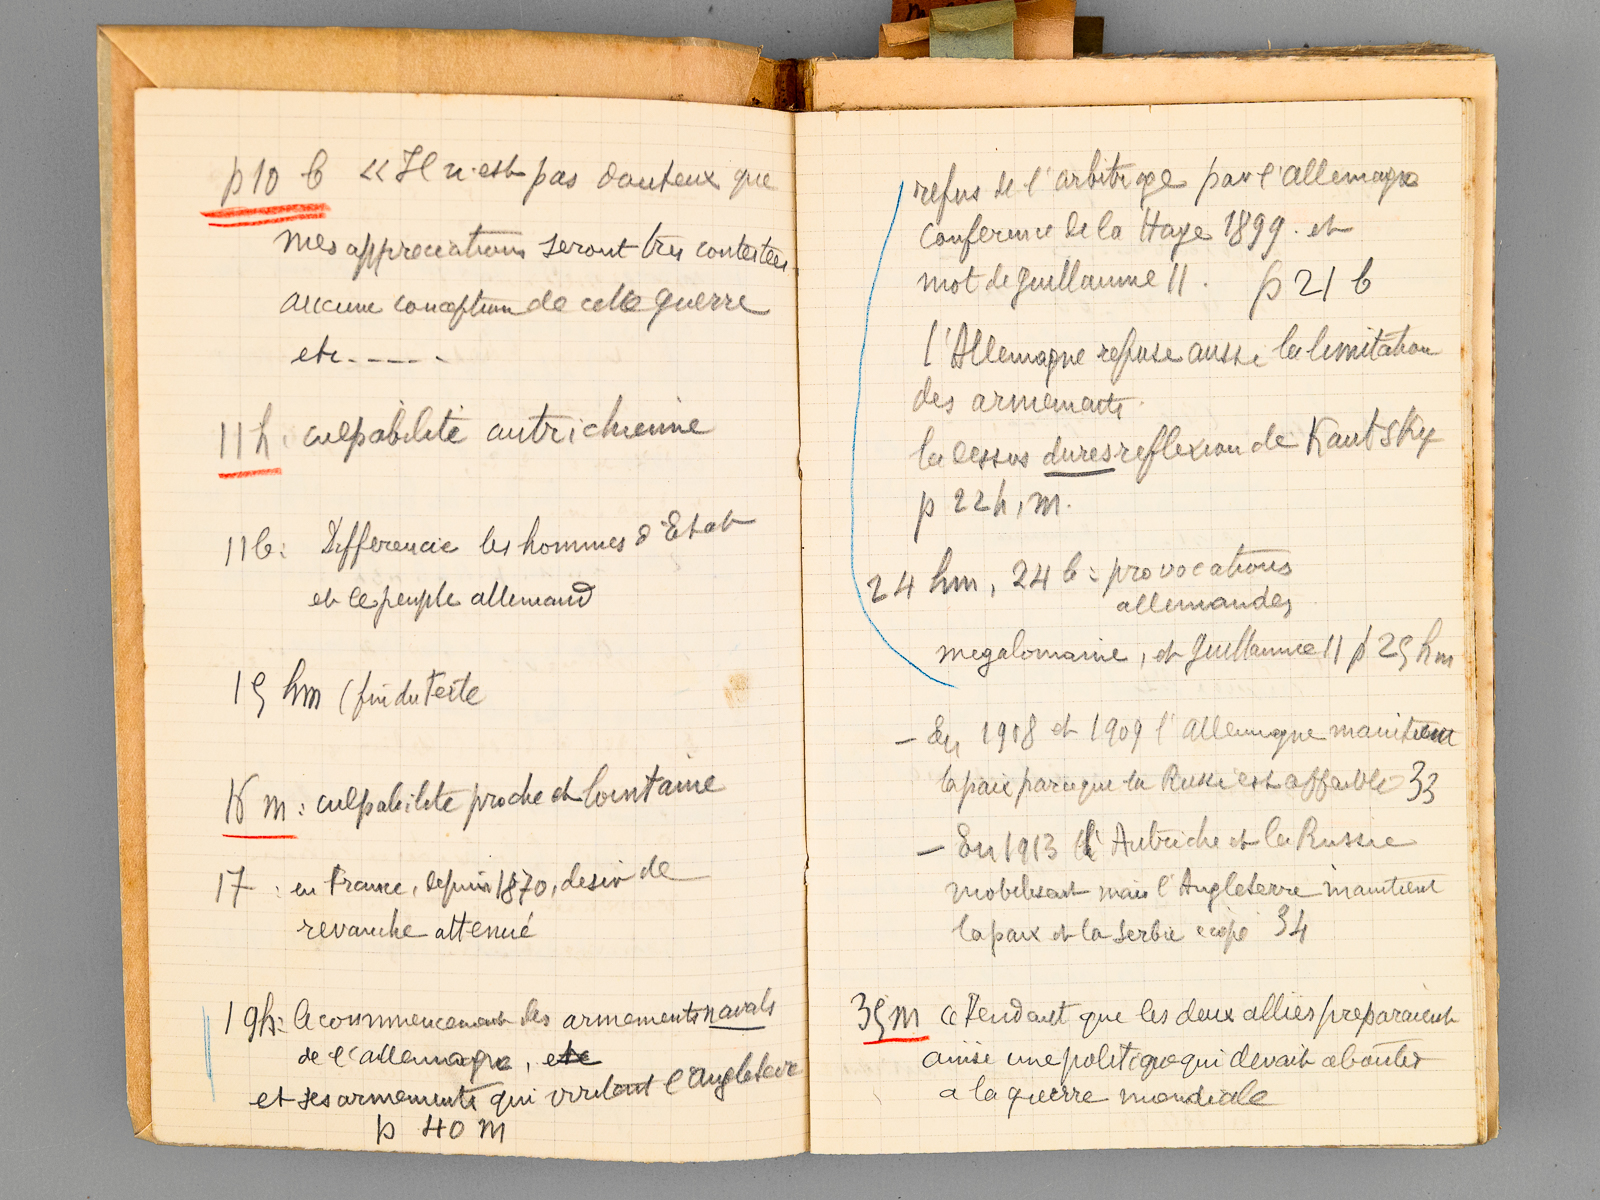 p 10 b « Il n'est pas douteux que
mes appreciations seront très contestées
aucune conception de cette guerre
etc.----
11 h : culpabilité autrichienne
11 b : Differencie les hommes d'Etat
et le peuple allemand
15 hm (fin du texte
m : culpabilite proche et lointaine
17 : en France, depuis 1870, desir de
revanche attenué
19h : le commencement des armements navals
de l'allemagne, etc
et ses armements qui irritent l'angleterre
p 40 m
refus de l'arbitrage par l'allemagne
conference de la Haye 1899. et
mot de guillaume II. p 21 b
l'Allemagne refuse aussi la limitation
des armements.
la dessus dures reflexion de Kautsky
p 22h, m.
24 hm, 24 b : provocations
allemandes,
megalomanie, et guillaume II p 25 hm
- En 1908 et 1909 l'allemagne maintient
la paix parce que la Russie est affaiblie 33
- En 1913 l'Autriche et la Russie
mobilisent mais l'Angleterre maintient
la paix et la Serbie 34
35 m cependant que les deux alliés préparaient
ainsi une politique qui devait aboutir
a la guerre mondiale